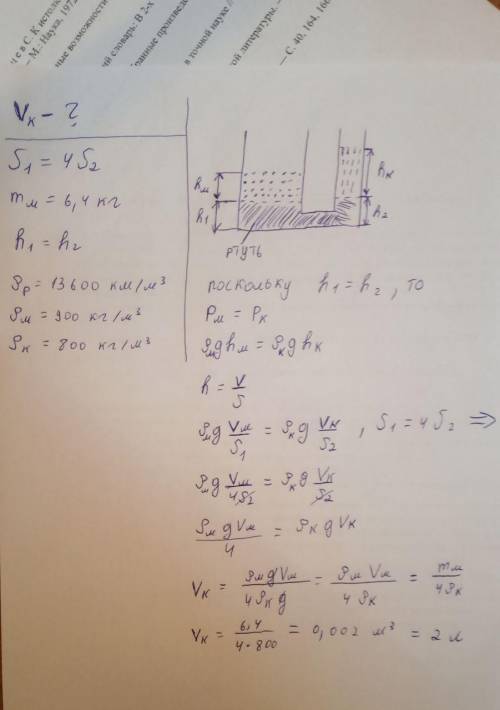 че в С. К истолко
— М.: Наука, 1972
ные возможности
ий словарь: В 2-х
бранные произвед
в точной науке //
ой литературы. —
— С. 40, 164, 166
Vк - ?
S1 = 4S2
mм = 6,4 кг
h1 = h2
ρр = 13600 км/м³
ρм = 900 кг/м³
ρк = 800 кг/м³
hм
h1
hк
h2
ртуть
поскольку h1 = h2, то
Pм = Pк
ρмghм = ρкghк
h = V/S
ρмg Vм/S1 = ρкg Vк/S2, S1 = 4S2 ⇒
ρмg Vм/4S2 = ρкg Vк/S2
ρмgVм/4 = ρкgVк
Vк = ρмgVм/4ρкg = ρмVм/4ρк = mм/4ρк
Vк = 6,4/4·800 = 0,002 м³ = 2 л